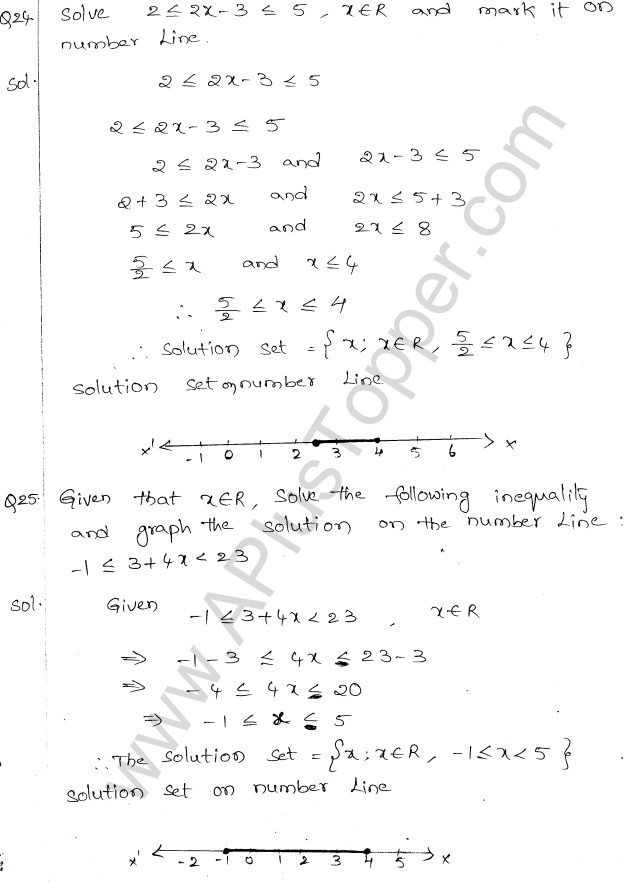 Q24. Solve 2 ≤ 2x-3 ≤ 5, x∈R and mark it on
number Line.
Sol. 2 ≤ 2x-3 ≤ 5
2 ≤ 2x-3 ≤ 5
2 ≤ 2x-3 and 2x-3 ≤ 5
2+3 ≤ 2x and 2x ≤ 5+3
5 ≤ 2x and 2x ≤ 8
5/2 ≤ x and x ≤ 4
∴ 5/2 ≤ x ≤ 4
∴ Solution set = {x; x∈R, 5/2 ≤ x ≤ 4}
Solution set on number Line
x' -1 0 1 2 3 4 5 6 x
Q25. Given that x∈R, Solve the following inequality
and graph the solution on the number Line:
-1 ≤ 3+4x < 23
Sol. Given -1 ≤ 3+4x < 23, x∈R
⇒ -1-3 ≤ 4x ≤ 23-3
⇒ -4 ≤ 4x ≤ 20
⇒ -1 ≤ x ≤ 5
∴ The Solution set = {x; x∈R, -1 ≤ x < 5}
Solution set on number Line
x' -2 -1 0 1 2 3 4 5 x
www.APlusTopper.com